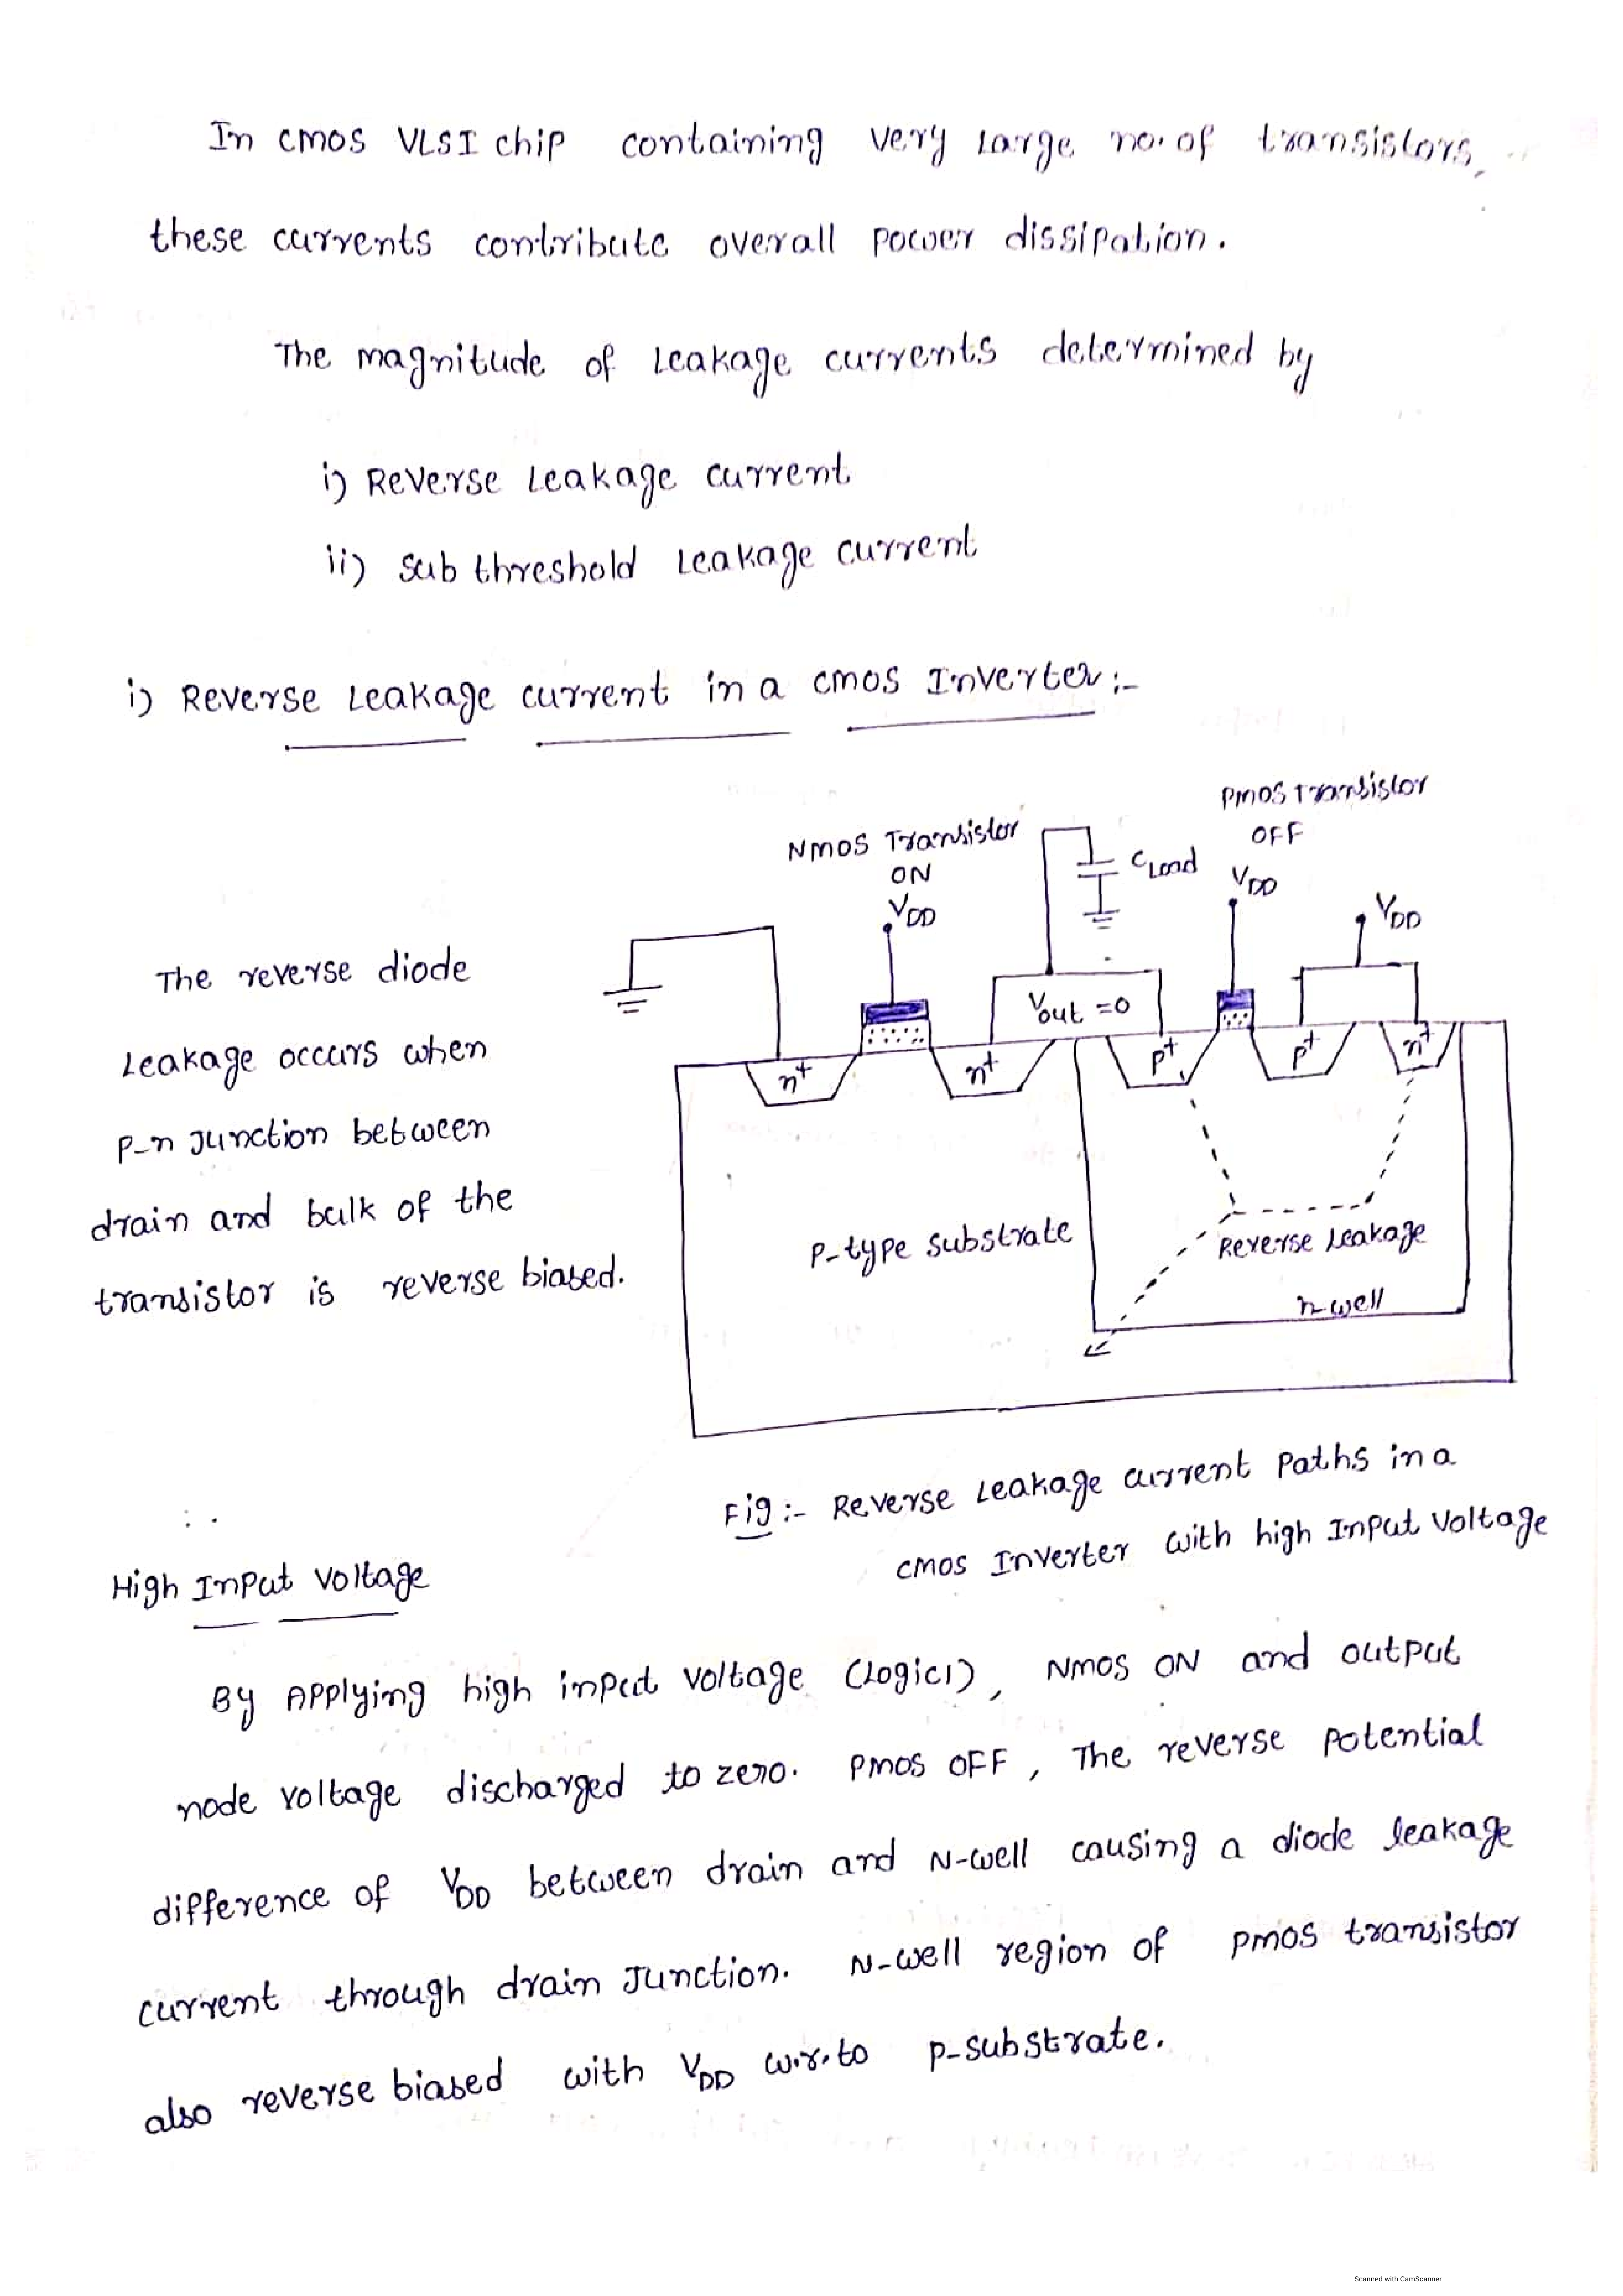 In CMOS VLSI chip containing very large no. of transistors,
these currents contribute overall power dissipation.
The magnitude of Leakage currents determined by
i) Reverse Leakage current
ii) Sub threshold Leakage current
i) Reverse Leakage current in a CMOS Inverter:-
PMOS Transistor
OFF
NMOS Transistor
ON
CLoad
VDD
VDD
VDD
The reverse diode
Leakage occurs when
P-n Junction between
drain and bulk of the
transistor is reverse biased.
Vout =0
n+
n+
p+
p+
n+
P-type substrate
Reverse Leakage
n-well
Fig:- Reverse Leakage current Paths in a
CMOS Inverter with high Input Voltage
High Input Voltage
By Applying high input voltage (Logic1), NMOS ON and output
node voltage discharged to zero. PMOS OFF, The reverse Potential
difference of VDD between drain and N-well causing a diode leakage
current through drain Junction. N-well region of PMOS transistor
also reverse biased with VDD w.r.to P-substrate.
Scanned with CamScanner